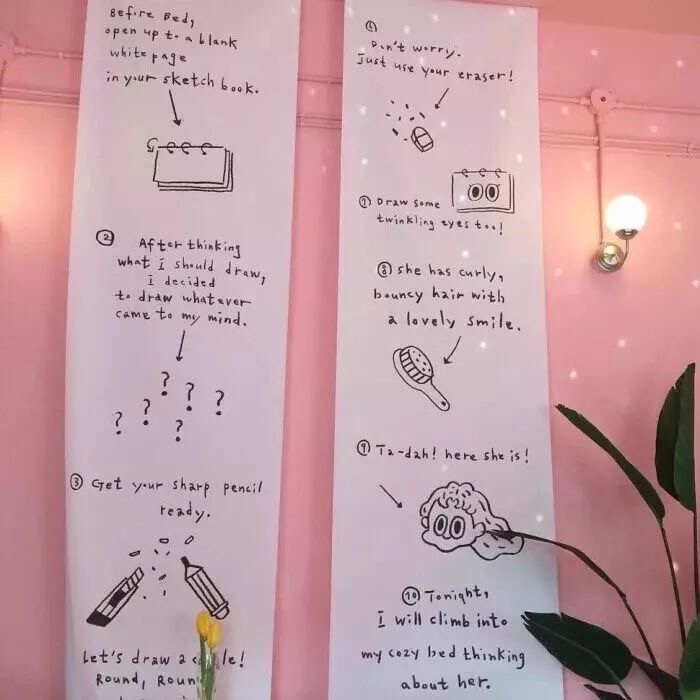 Before Bed,
open up to a blank
white page
in your sketch book.
② After thinking
what i should draw,
i decided
to draw whatever
came to my mind.
? ? ?
? ?
?
③ Get your sharp pencil
ready.
Let's draw a
Round,
⑥
Don't worry.
Just use your eraser!
⑦ Draw some
twinkling eyes too!
⑧ she has curly,
bouncy hair with
a lovely smile.
⑨ Ta-dah! here she is!
⑩ Tonight,
i will climb into
my cozy bed thinking
about her.